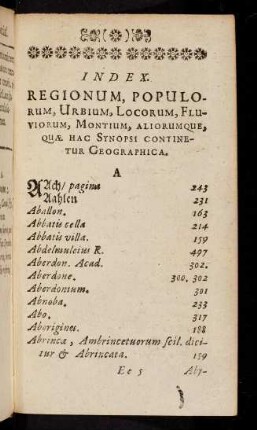 INDEX.
REGIONUM, POPULO-
RUM, URBIUM, LOCORUM, FLU-
VIORUM, MONTIUM, ALIORUMQUE,
QUÆ HAC SYNOPSI CONTINE-
TUR GEOGRAPHICA.
A
AAch/ pagina 243
Aahlen 231
Aballon. 163
Abbatis cella 214
Abbatis villa. 159
Abdelmuleius R. 497
Aberdon. Acad. 302.
Aberdone. 300. 302
Aberdonium. 301
Abnoba. 233
Abo. 317
Aborigines. 188
Abrinca, Ambrincetuorum scil. dici-
tur & Abrincata. 159
Ee 5 Abs-